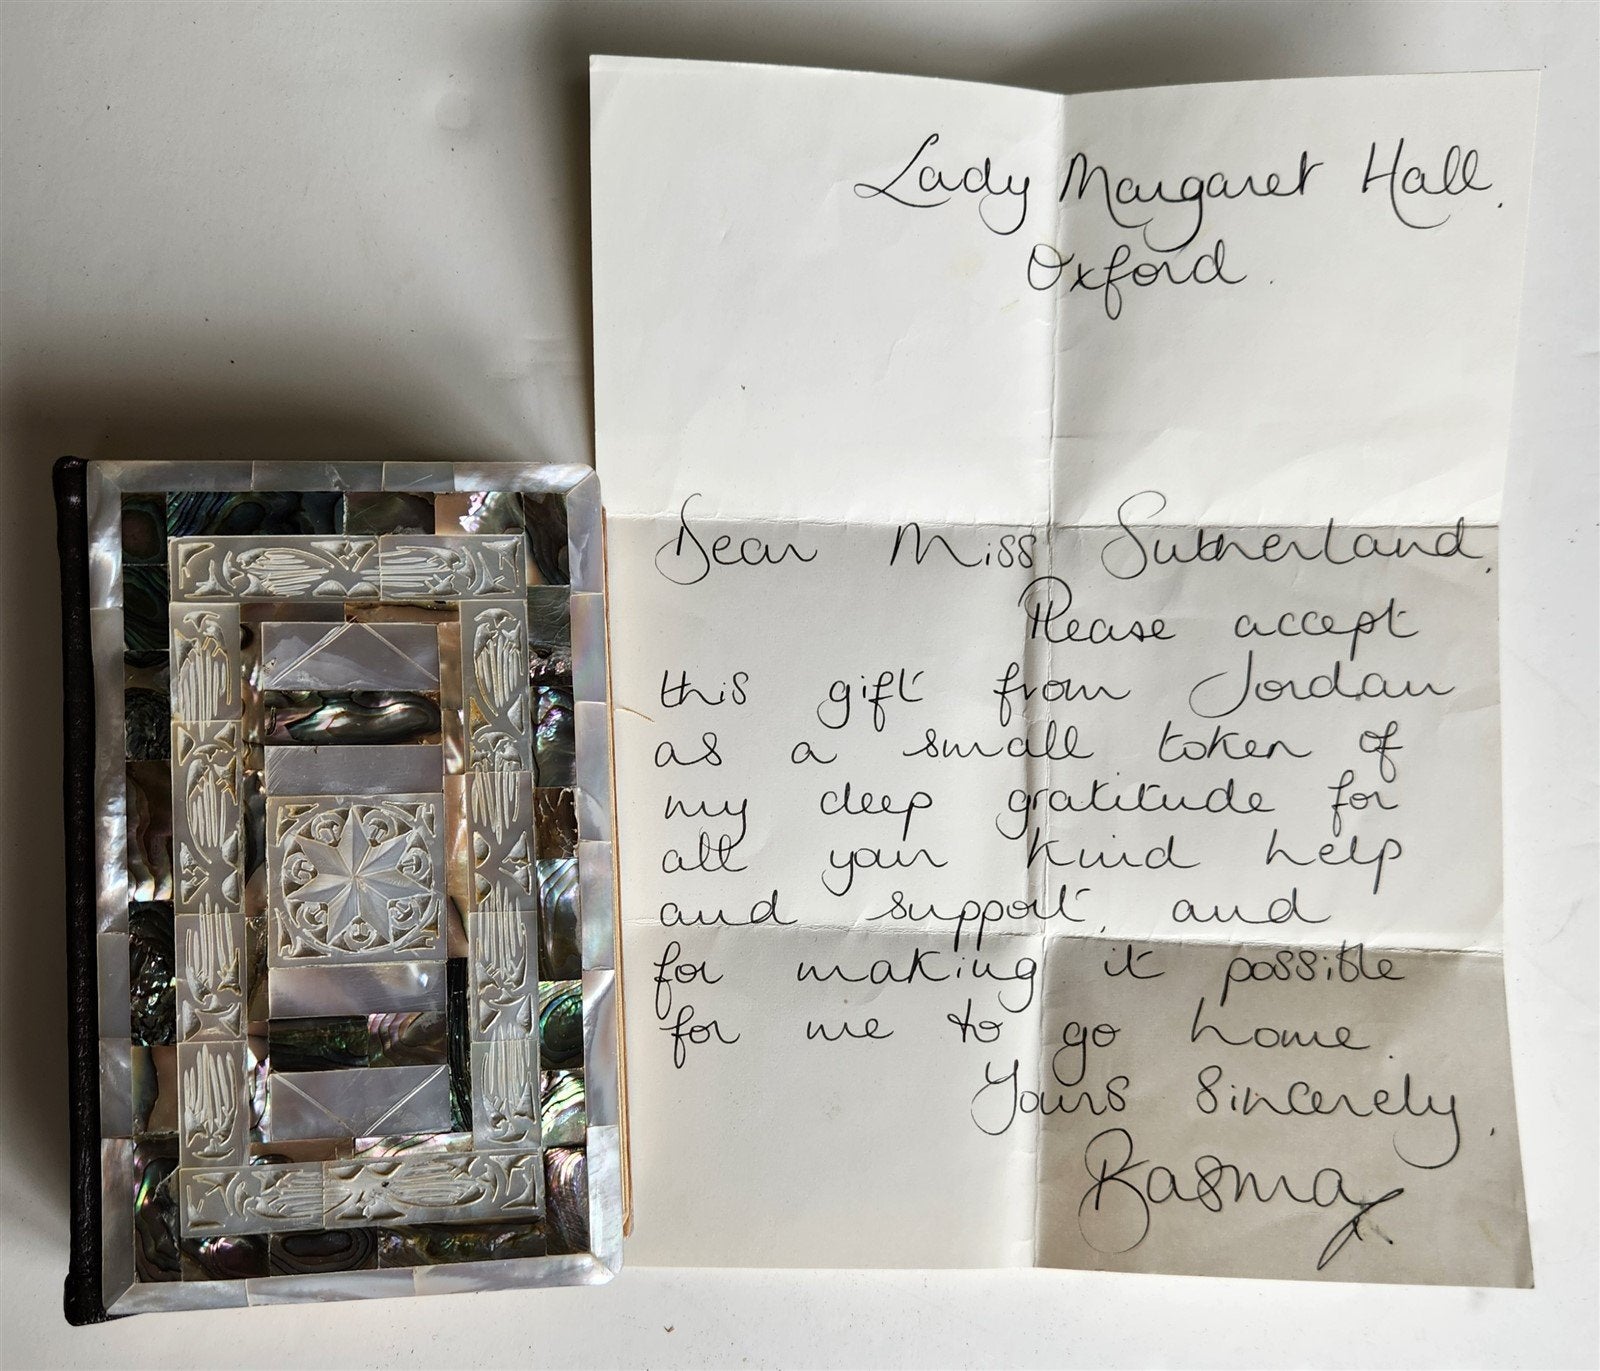 Lady Margaret Hall.
Oxford.
Dear Miss Sutherland,
Please accept
this gift from Jordan
as a small token of
my deep gratitude for
all your kind help
and support, and
for making it possible
for me to go home.
Yours Sincerely,
Basma